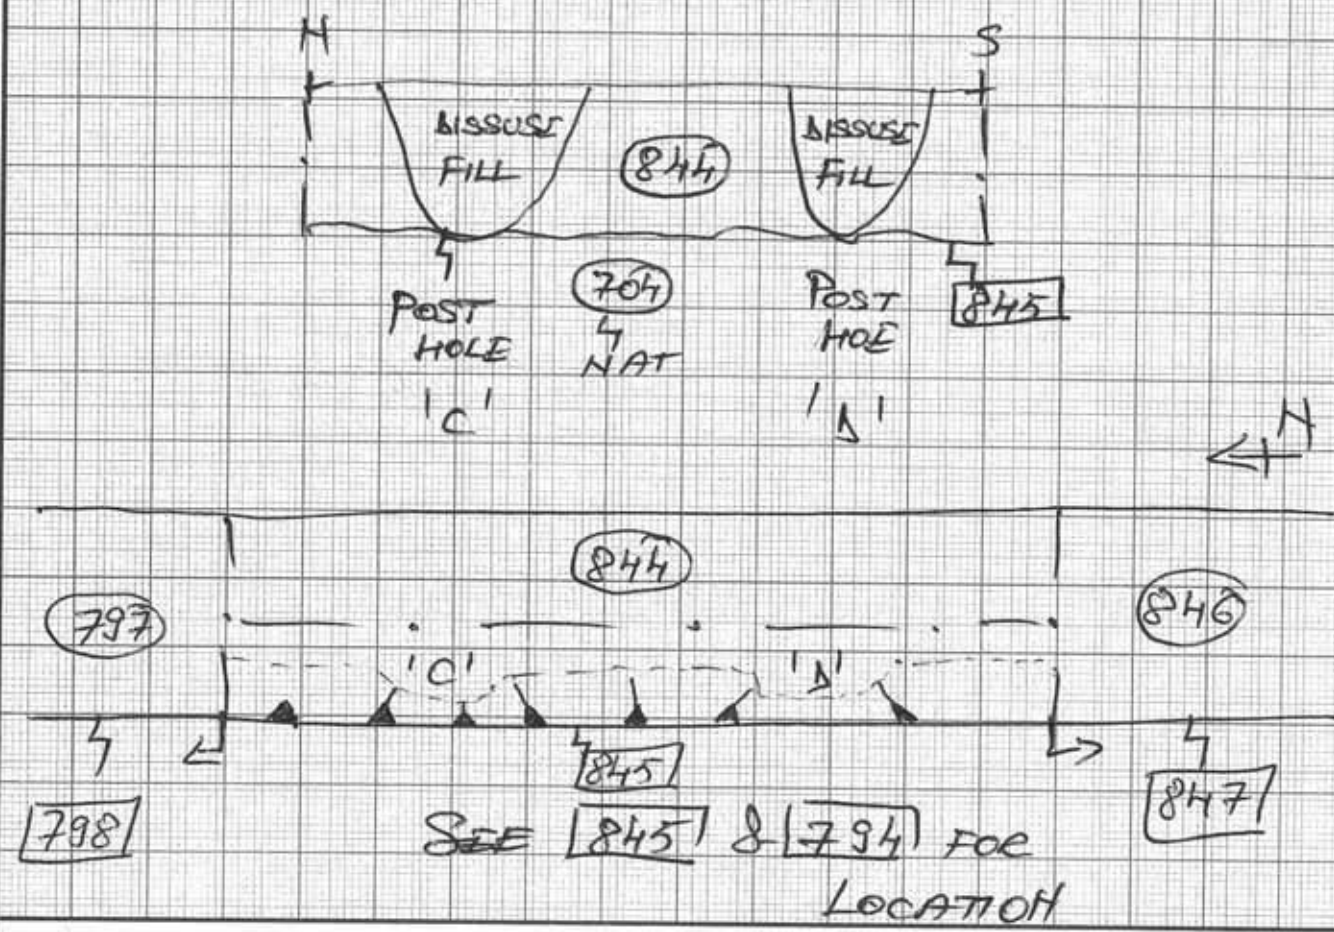 N S
DISSUSE FILL
844
DISSUSE FILL
POST HOLE 'C'
704
NAT
POST HOE 'D'
845
N
844
797
846
'C' 'D'
845
798
847
SEE 845 & 794 FOR
LOCATION